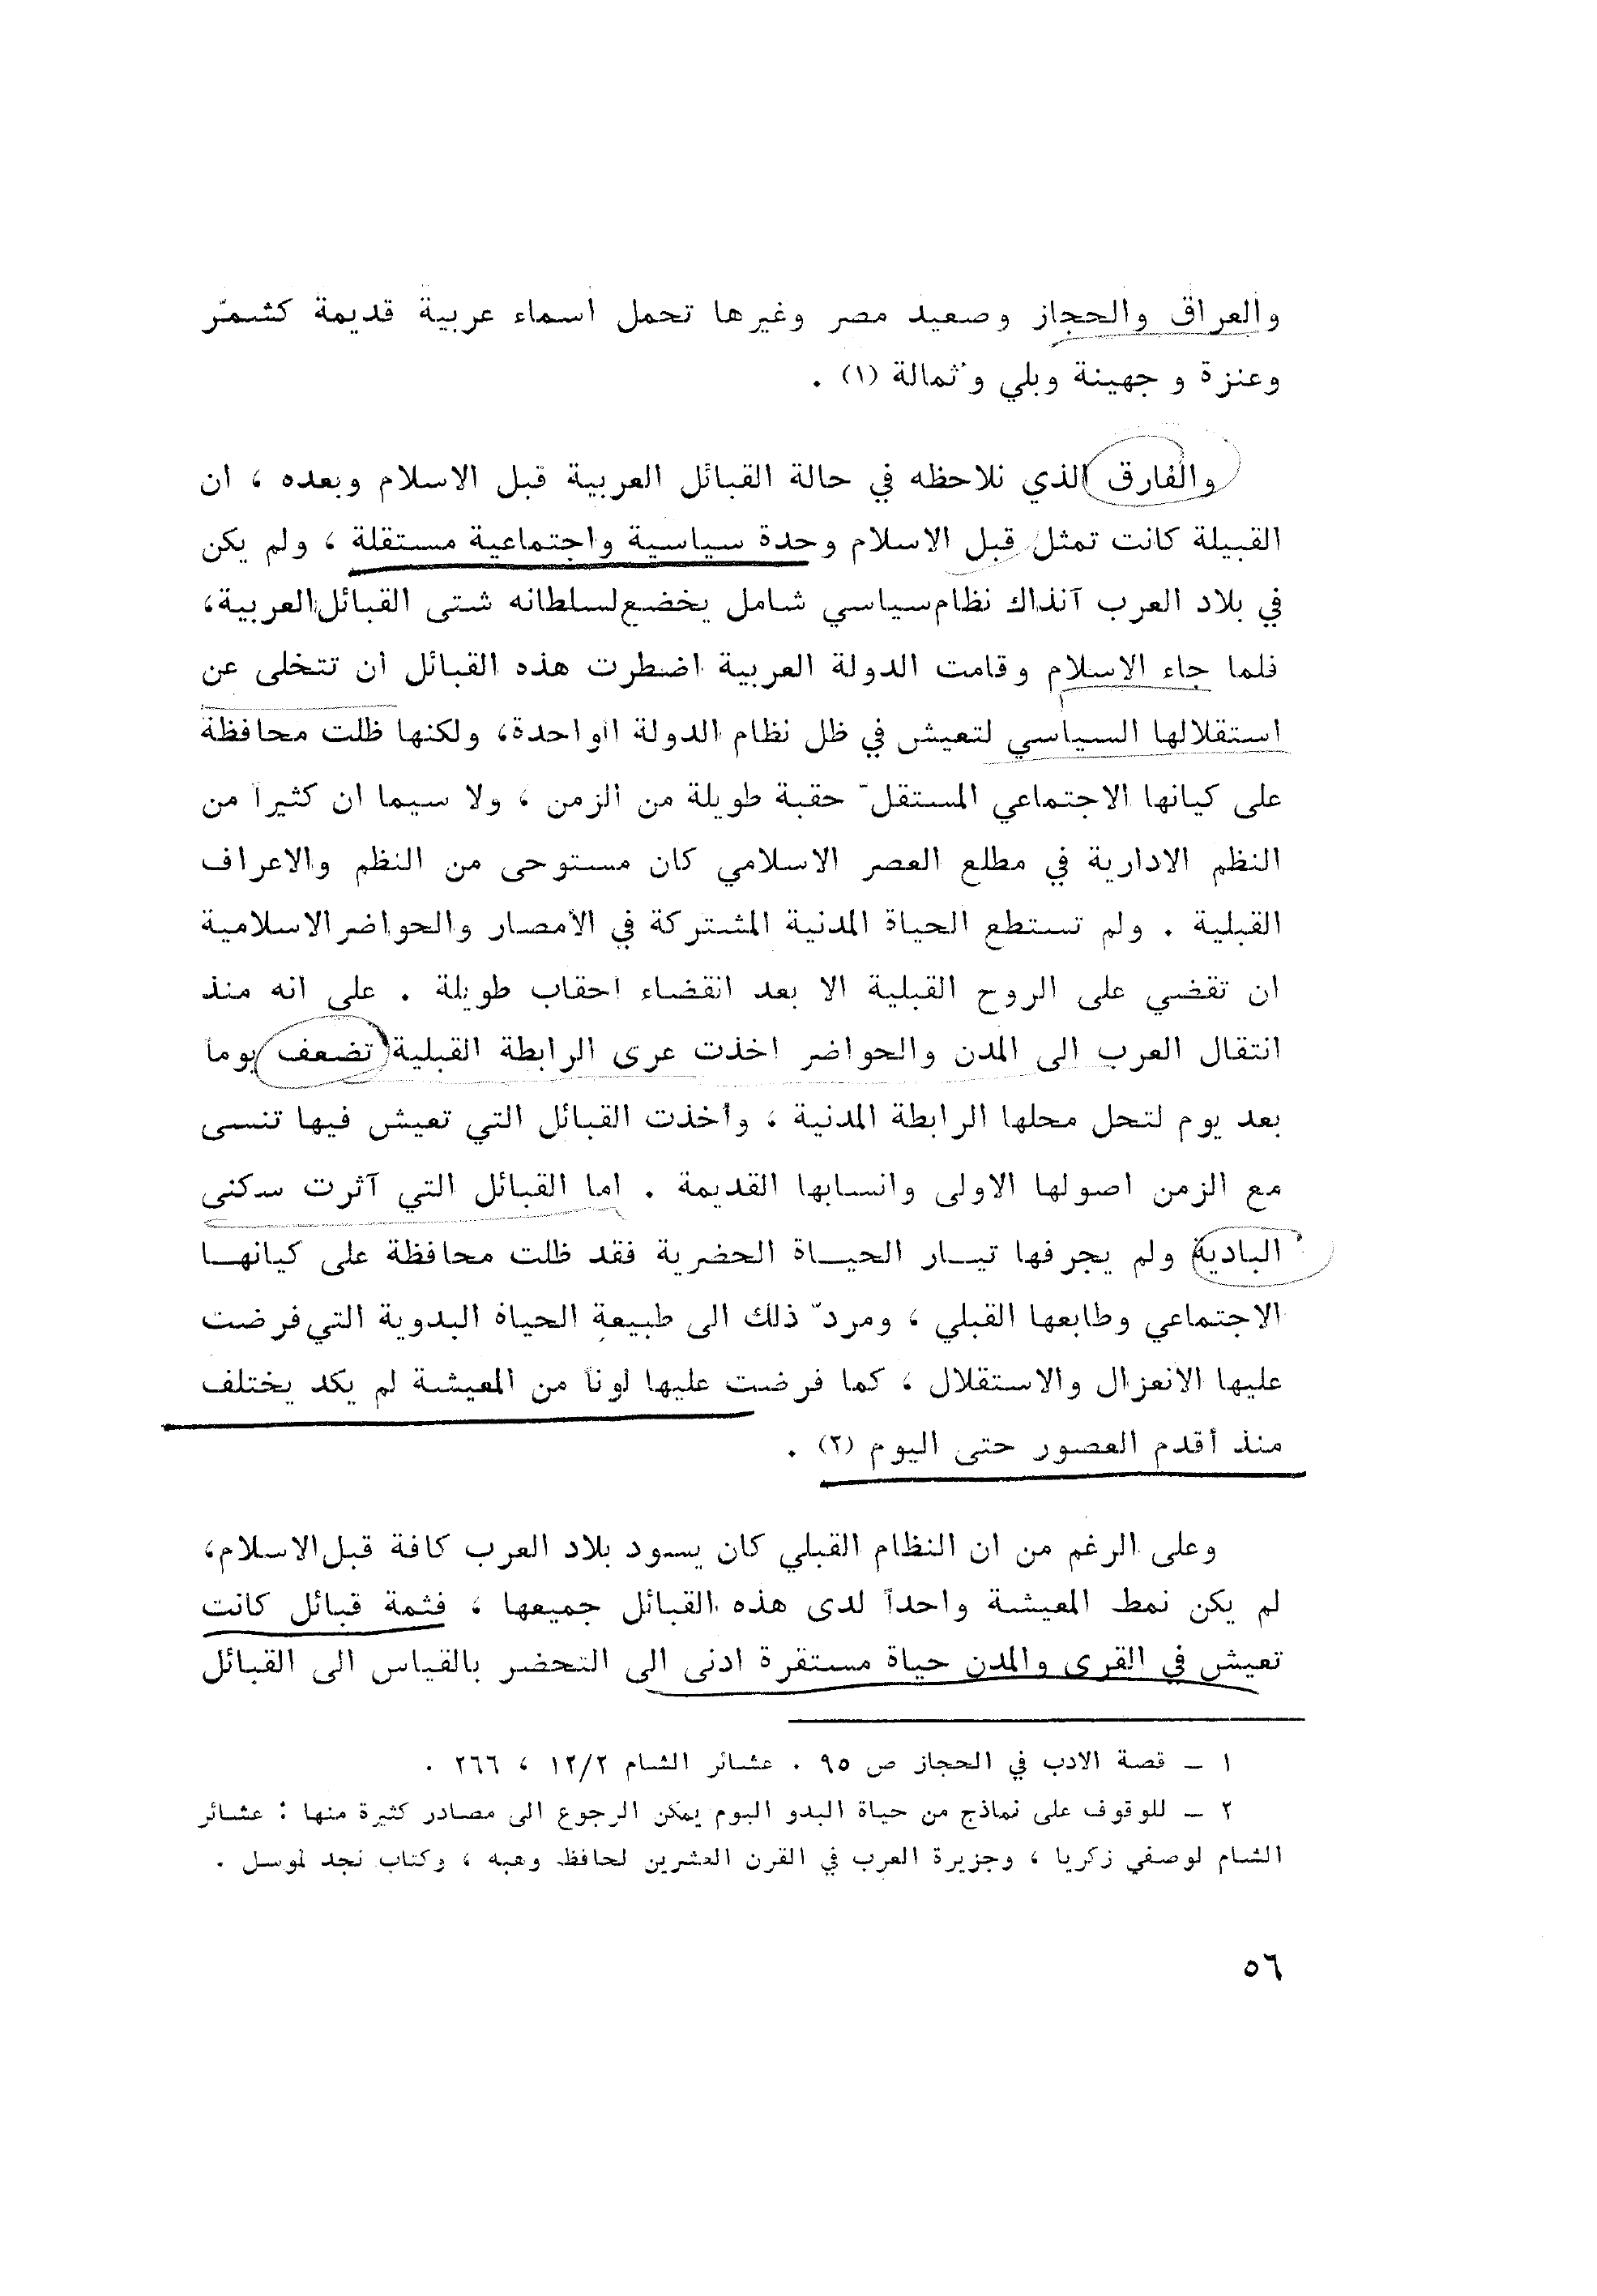 والعراق والحجاز وصعيد مصر وغيرها تحمل اسماء عربية قديمة كشمّر
وعنزة و جهينة وبلي وثُمالة (١) .
والفارق الذي نلاحظه في حالة القبائل العربية قبل الاسلام وبعده ، ان
القبيلة كانت تمثل قبل الاسلام وحدة سياسية واجتماعية مستقلة ، ولم يكن
في بلاد العرب آنذاك نظام سياسي شامل يخضع لسلطانه شتى القبائل العربية،
فلما جاء الاسلام وقامت الدولة العربية اضطرت هذه القبائل ان تتخلى عن
استقلالها السياسي لتعيش في ظل نظام الدولة الواحدة، ولكنها ظلت محافظة
على كيانها الاجتماعي المستقلّ حقبة طويلة من الزمن ، ولا سيما ان كثيراً من
النظم الادارية في مطلع العصر الاسلامي كان مستوحى من النظم والاعراف
القبلية . ولم تستطع الحياة المدنية المشتركة في الأمصار والحواضر الاسلامية
ان تقضي على الروح القبلية الا بعد انقضاء احقاب طويلة . على انه منذ
انتقال العرب الى المدن والحواضر اخذت عرى الرابطة القبلية تضعف يوماً
بعد يوم لتحل محلها الرابطة المدنية ، وأخذت القبائل التي تعيش فيها تنسى
مع الزمن اصولها الاولى وانسابها القديمة . اما القبائل التي آثرت سكنى
البادية ولم يجرفها تيـار الحيـاة الحضرية فقد ظلت محافظة على كيانهـا
الاجتماعي وطابعها القبلي ، ومردّ ذلك الى طبيعة الحياة البدوية التي فرضت
عليها الانعزال والاستقلال ، كما فرضت عليها لوناً من المعيشة لم يكد يختلف
منذ أقدم العصور حتى اليوم (٢) .
وعلى الرغم من ان النظام القبلي كان يسود بلاد العرب كافة قبل الاسلام،
لم يكن نمط المعيشة واحداً لدى هذه القبائل جميعها ، فثمة قبائل كانت
تعيش في القرى والمدن حياة مستقرة ادنى الى التحضر بالقياس الى القبائل
١ ـ قصة الادب في الحجاز ص ٩٥ . عشائر الشام ١٢/٢ ، ٢٦٦ .
٢ ـ للوقوف على نماذج من حياة البدو اليوم يمكن الرجوع الى مصادر كثيرة منها : عشائر
الشام لوصفي زكريا ، وجزيرة العرب في القرن العشرين لحافظ وهبه ، وكتاب نجد لموسل .
٥٦